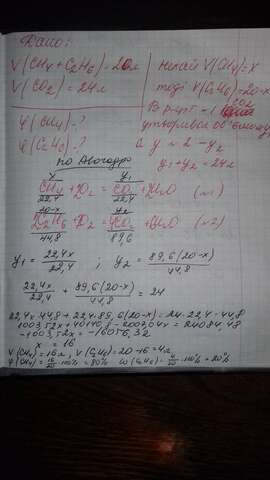 Дано:
V(CH₄+C₂H₆)=20л
V(CO₂)=24л
φ(CH₄)-?
φ(C₂H₆)-?
Нехай V(CH₄)=x
тоді V(C₂H₆)=20-x
В р-ції-1 CO₂
утворився об'ємом y₁
а у 2 - y₂
y₁+y₂=24л
по Авогадро
x y₁
CH₄+O₂=CO₂+H₂O (1)
22,4 22,4
20-x y₂
C₂H₆+O₂=4CO₂+H₂O (2)
44,8 89,6
y₁=22,4x/22,4 ; y₂=89,6(20-x)/44,8
22,4x/22,4 + 89,6(20-x)/44,8 = 24
22,4x·44,8+22,4·89,6(20-x)=24·22,4·44,8
1003,52x+40140,8-2007,04x=24084,48
-1003,52x=-16056,32
x=16
V(CH₄)=16л, V(C₂H₆)=20-16=4л
φ(CH₄)=16/20·100%=80% ω(C₂H₆)=4/20·100%=20%